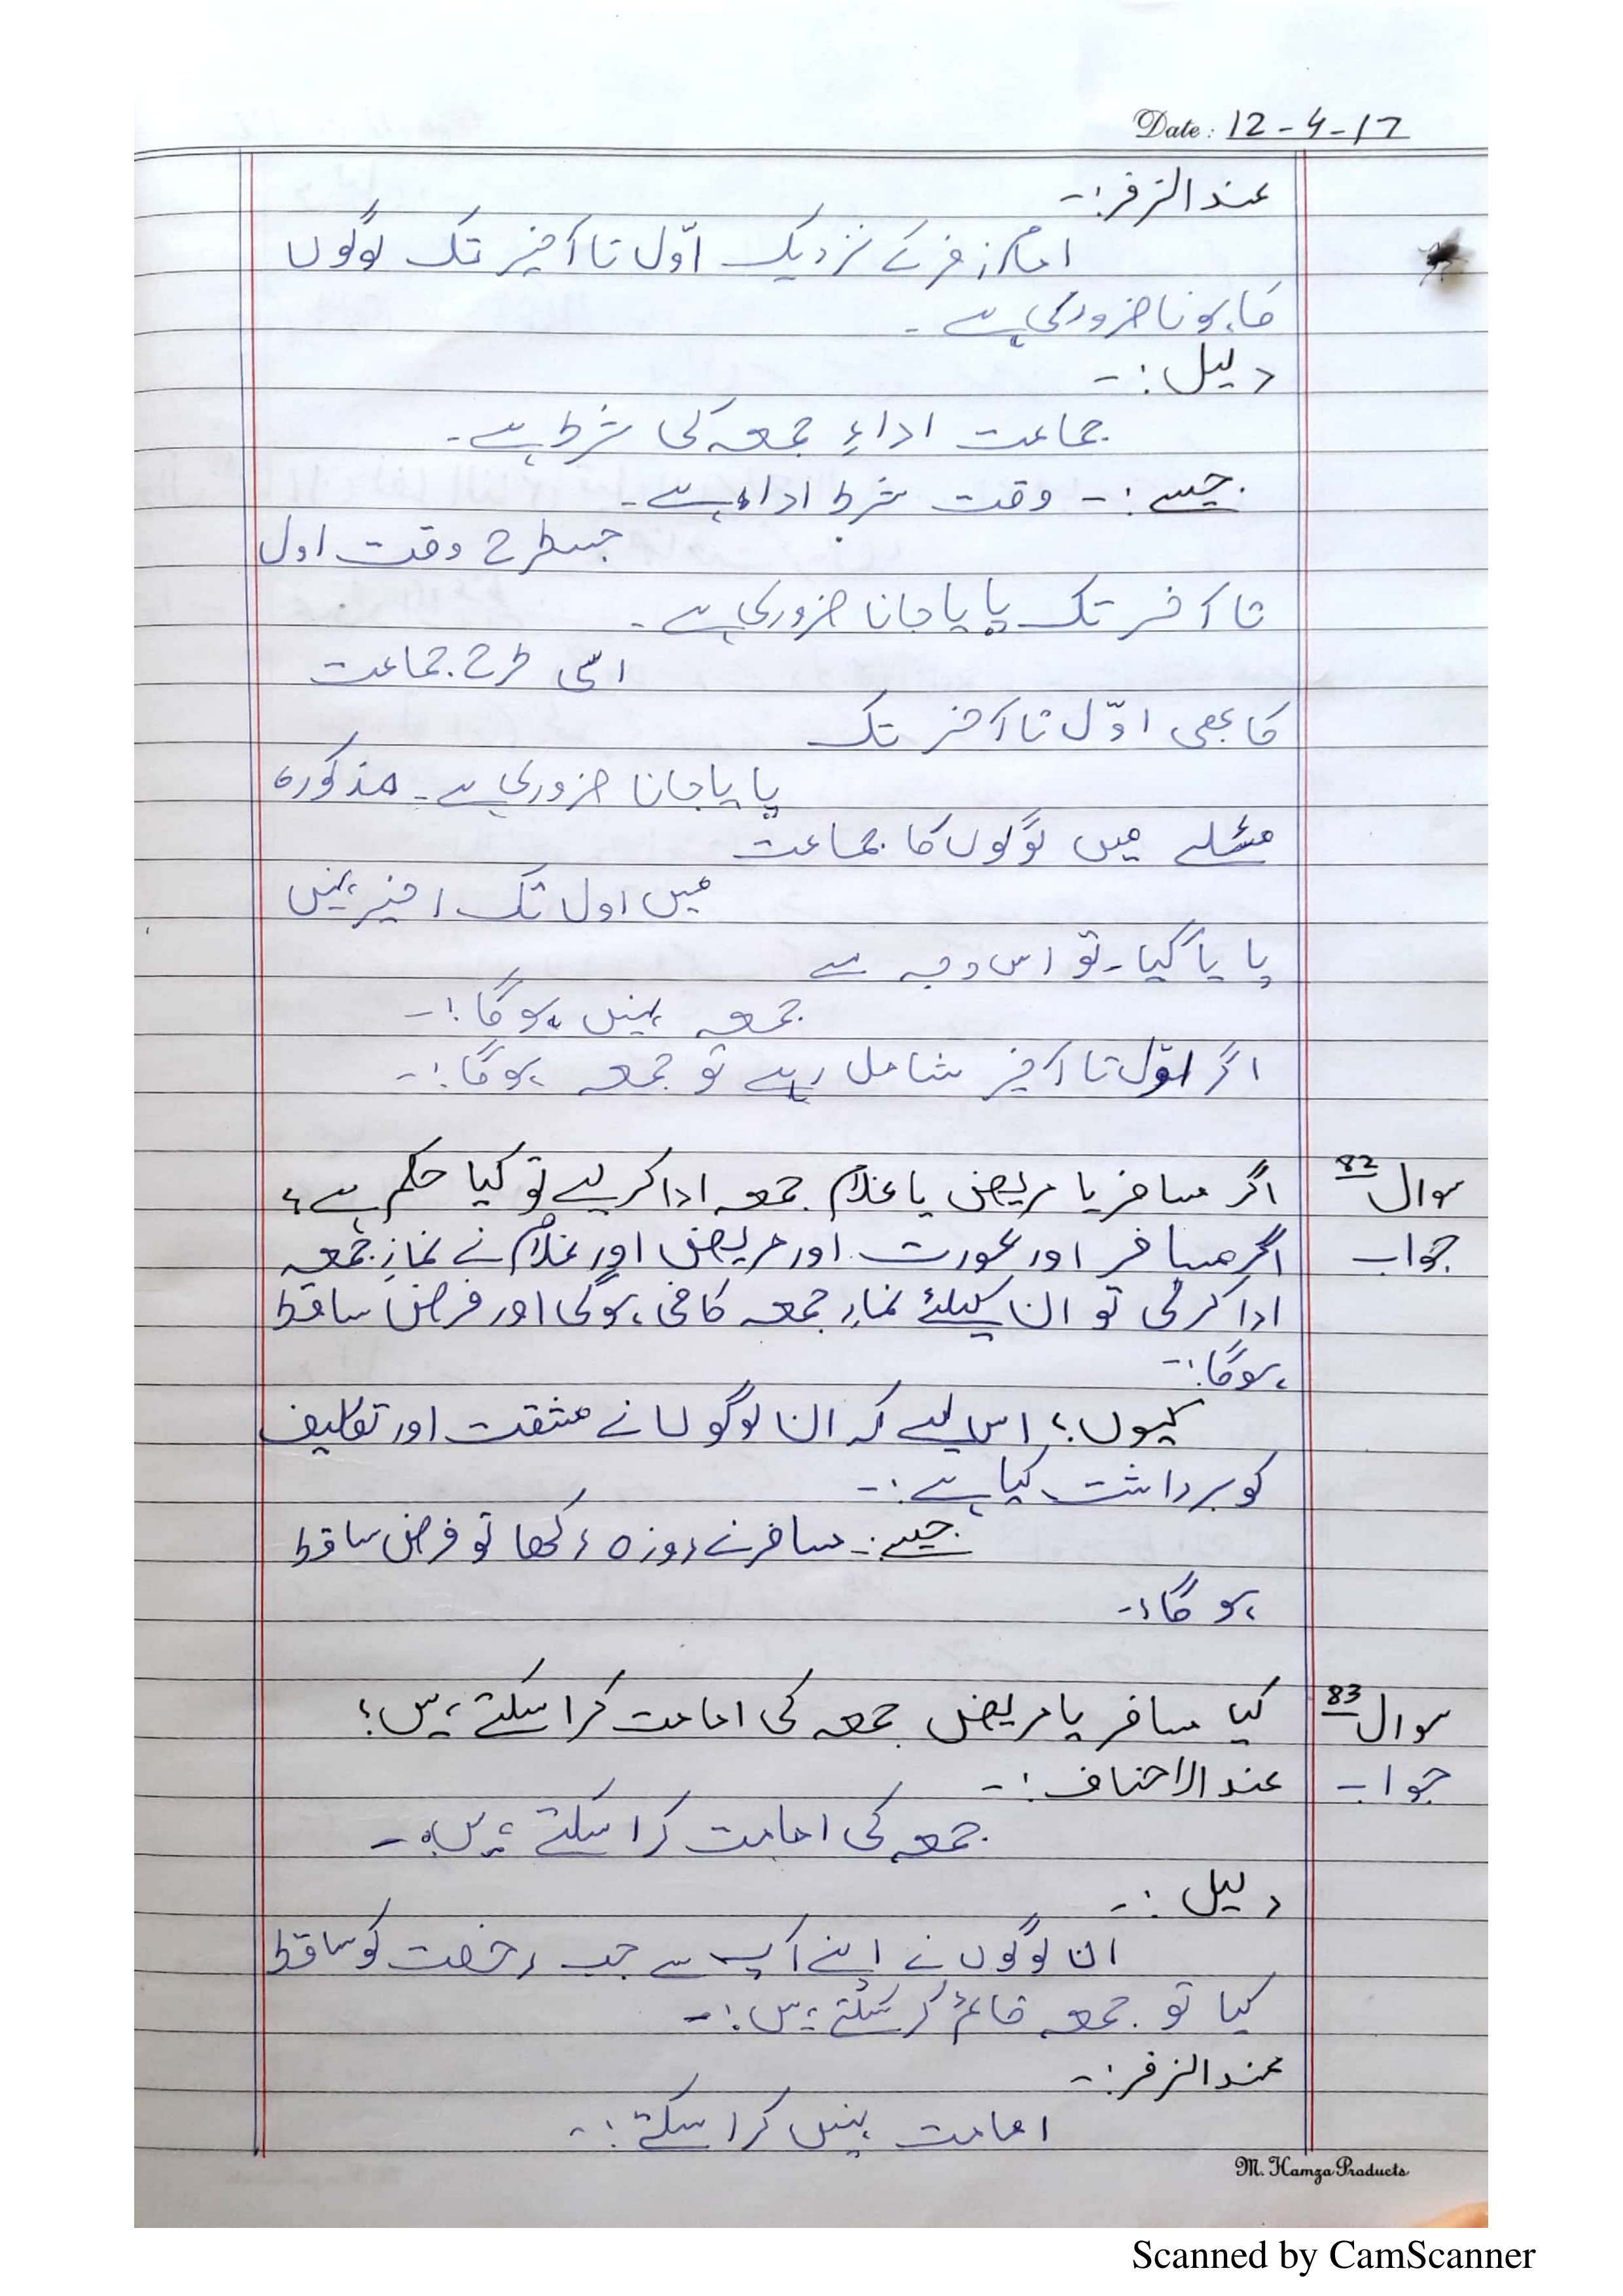 Date: 12-4-17
عند الزفر:-
امام زفر کے نزدیک اوّل تا آخیر تک لوگوں
کا ہونا ضروری ہے۔
دلیل:-
جماعت اداءِ جمعہ کی شرط ہے۔
جیسے:- وقت شرط اداء ہے۔
جسطرح وقت اول
تا آخر تک پایا جانا ضروری ہے۔
اسی طرح جماعت
کا بھی اوّل تا آخر تک
پایا جانا ضروری ہے۔ مذکورہ
مسئلے میں لوگوں کا جماعت
میں اول تک اخیر نہیں
پایا گیا۔ تو اس وجہ سے
جمعہ نہیں ہوگا:-
اگر اوّل تا آخیر شامل رہے تو جمعہ ہوگا:-
سوال 82 اگر مسافر یا مریض یا غلام جمعہ ادا کر لیے تو کیا حکم ہے؟
جواب اگر مسافر اور عورت اور مریض اور غلام نے نمازِ جمعہ
ادا کر لی تو ان کیلئے نمازِ جمعہ کافی ہوگی اور فرض ساقط
ہوگا:-
کیوں؟ اس لیے کہ ان لوگوں نے مشقت اور تکلیف
کو برداشت کیا ہے:-
جیسے:- مسافر نے روزہ رکھا تو فرض ساقط
ہوگا:-
سوال 83 کیا مسافر یا مریض جمعہ کی امامت کرا سکتے ہیں؟
جواب عند الاحناف:-
جمعہ کی امامت کرا سکتے ہیں۔
دلیل:-
ان لوگوں نے اپنے آپ سے جب رخصت کو ساقط
کیا تو جمعہ قائم کر سکتے ہیں:-
عند الزفر:-
امامت نہیں کرا سکتے:-
M. Hamza Products
Scanned by CamScanner